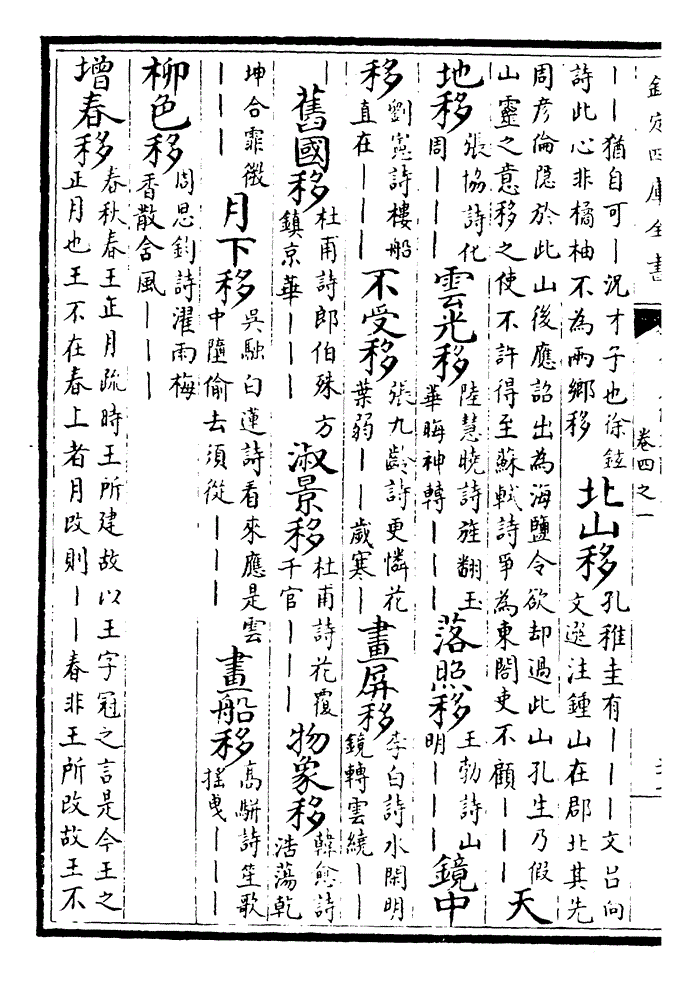 欽定四庫全書
卷四之一
——猶自可—況才子也徐鉉
詩此心非橘柚不為兩鄉移
北山移
孔稚圭有———文呂向
文選注鍾山在郡北其先
周彦倫隠於此山後應詔出為海鹽令欲却過此山孔生乃假
山靈之意移之使不許得至蘇軾詩爭為東閣吏不顧———
天
地移
張協詩化
周————
雲光移
陸慧曉詩旌翻玉
華晦神轉———
落照移
王勃詩山
明————
鏡中
移
劉憲詩樓船
直在———
不受移
張九齡詩更憐花
葉弱——歲寒—
畫屏移
李白詩水閒明
鏡轉雲繞——
—
舊國移
杜甫詩郎伯殊方
鎮京華———
淑景移
杜甫詩花覆
千官———
物象移
韓愈詩
浩蕩乾
坤合霏微
———
月下移
吳融白蓮詩看來應是雲
中墮偷去須從———
畫船移
高駢詩笙歌
揺曳———
柳色移
周思鈞詩濯雨梅
香散含風———
增春移
春秋春王正月疏時王所建故以王字冠之言是今王之
正月也王不在春上者月改則——春非王所改故王不